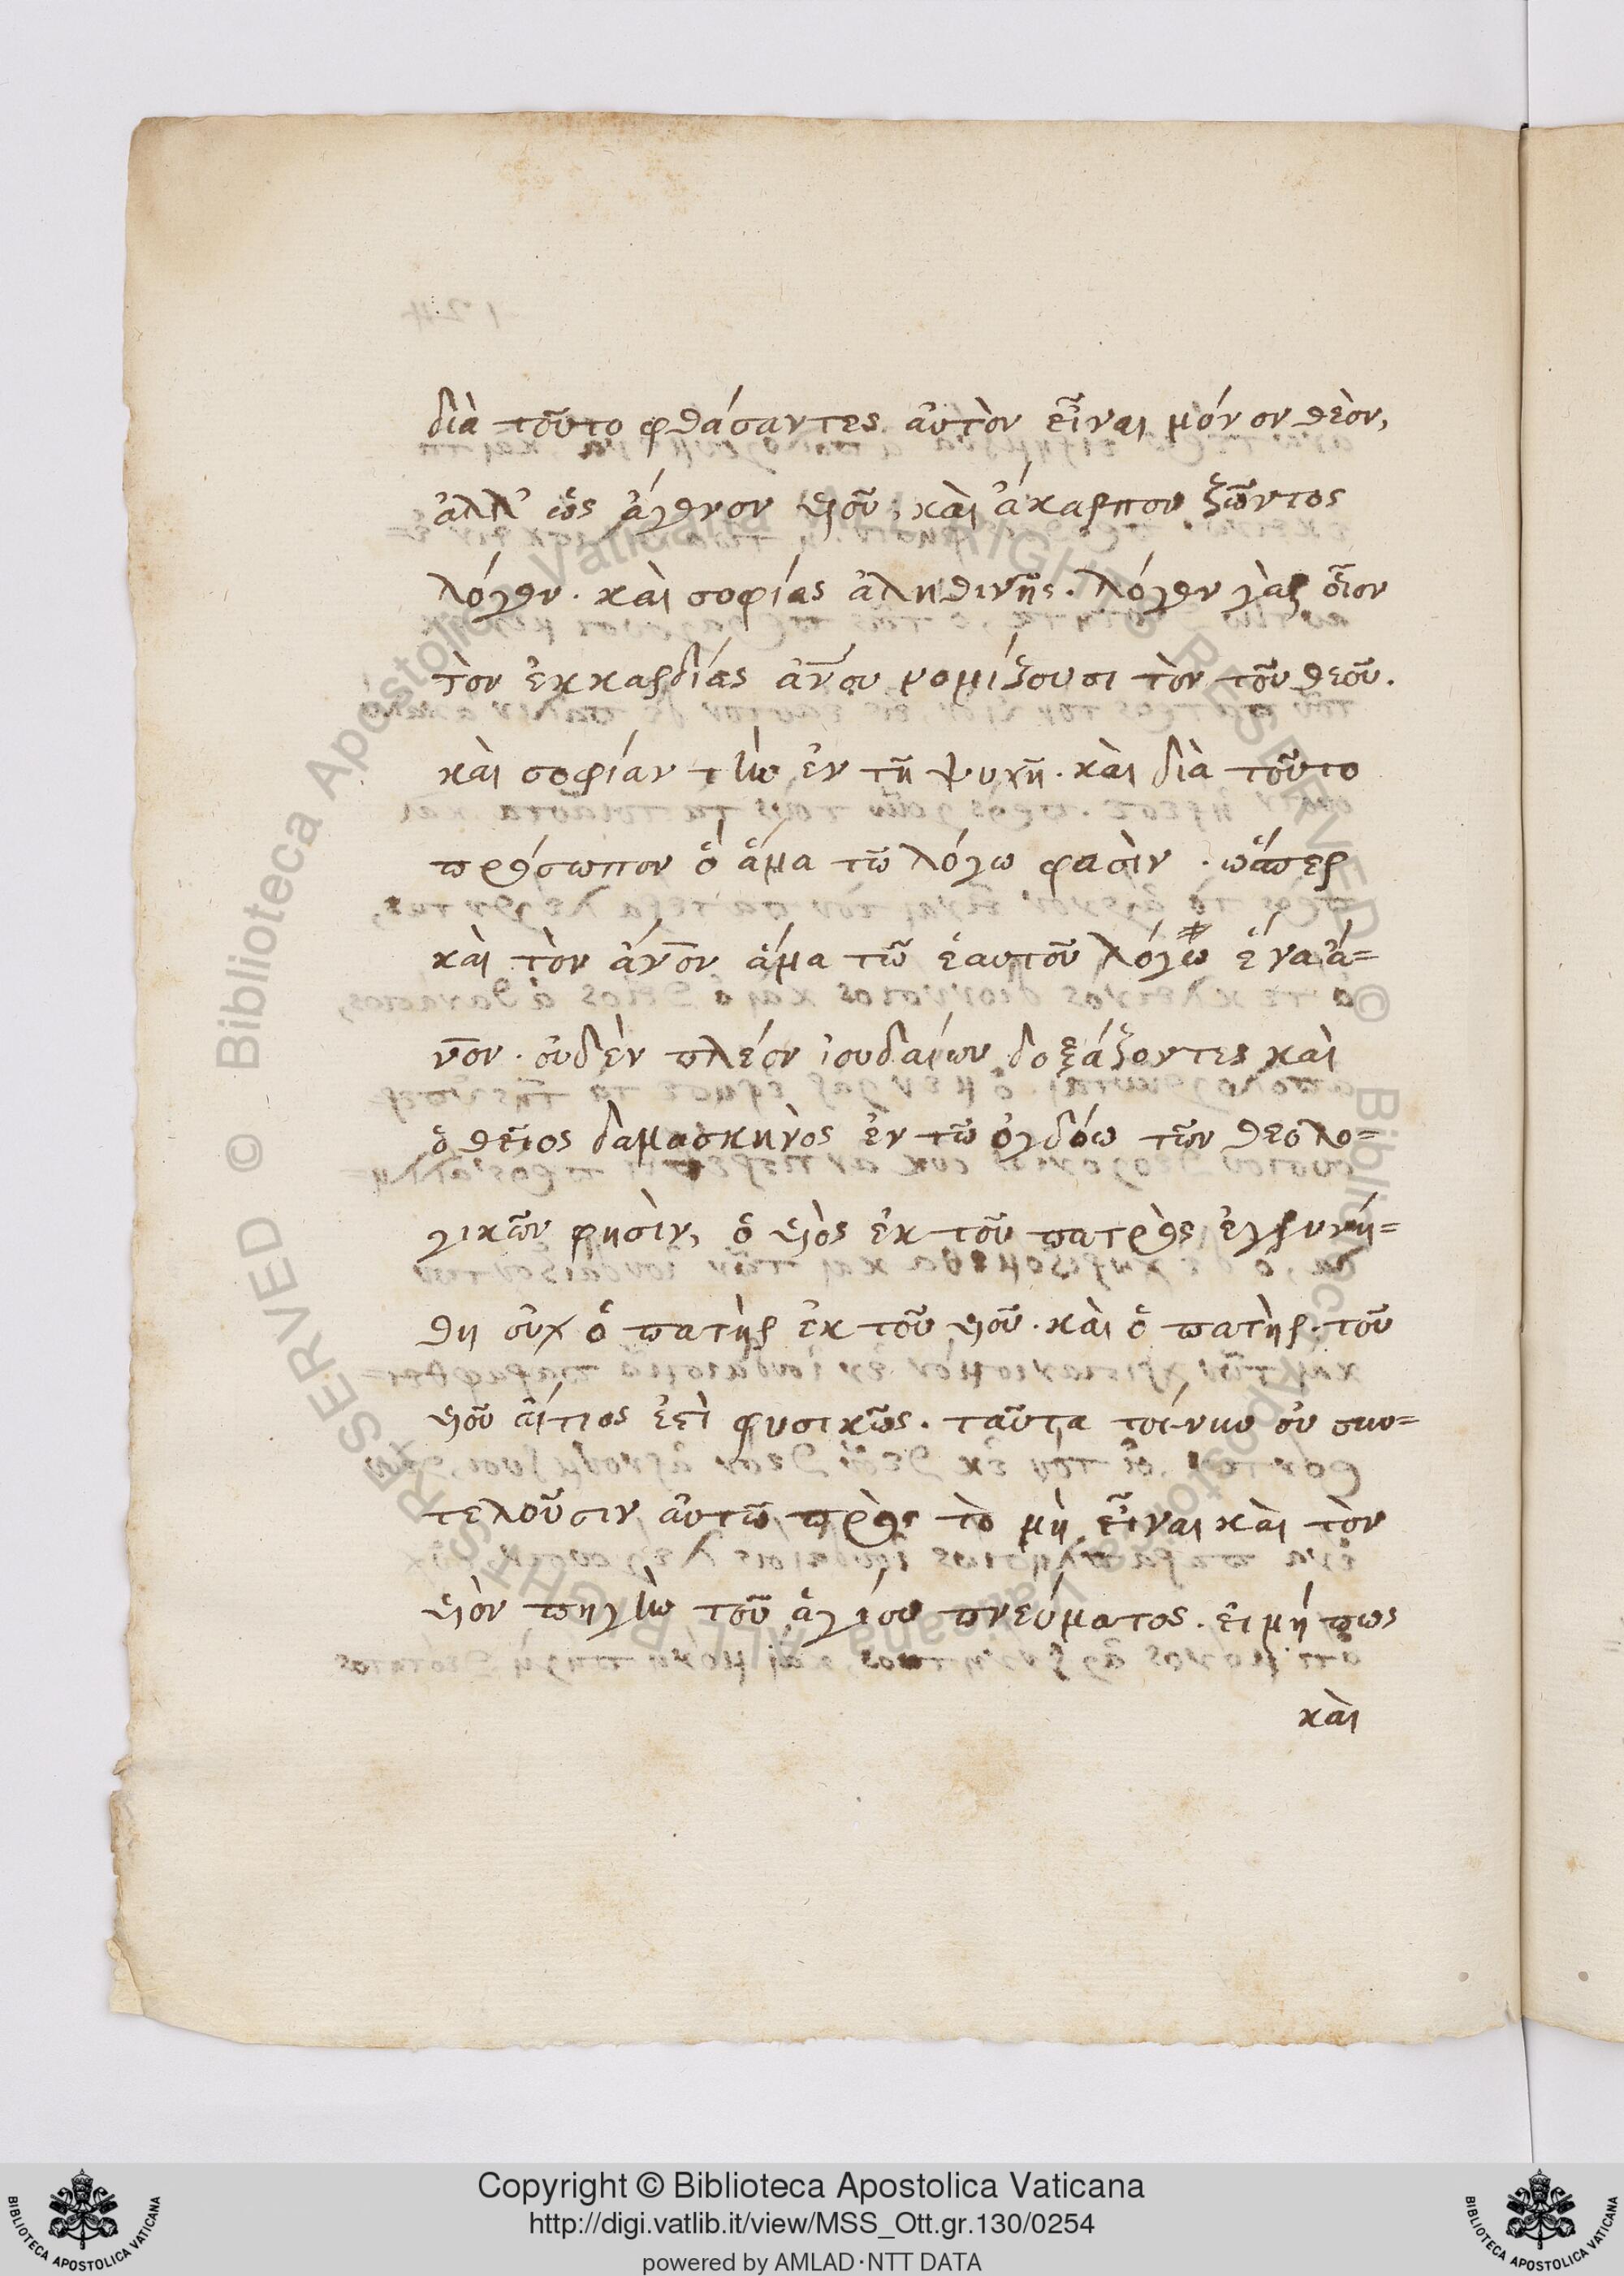 διὰ τοῦτο φθάσαντες αὐτὸν εἶναι μόνον θεὸν,
ἀλλ' ὡς ἄγονον υἱοῦ, καὶ ἄκαρπον ζῶντος
λόγου. καὶ σοφίας ἀληθινῆς. λόγον γὰρ οἷον
τὸν ἐκκαρδίας ἀν̅ου νομίζουσι τὸν τοῦ θεοῦ.
καὶ σοφίαν τὴν ἐν τῆ ψυχῆ. καὶ διὰ τοῦτο
πρόσωπον ὃ ἅμα τῶ λόγω φασὶν. ὥσπερ
καὶ τὸν ἄν̅ον ἅμα τῶ ἑαυτοῦ λόγω ἕνα ἄ=
ν̅ον. οὐδὲν πλέον ἰουδαίων δοξάζοντες καὶ
ὁ θεῖος δαμασκηνὸς ἐν τῶ ὀγδόω τῶν θεολο=
γικῶν φησὶν, ὁ υἱὸς ἐκ τοῦ πατρὸς ἐγεννή=
θη οὐχ ὁ πατὴρ ἐκ τοῦ υἱοῦ. καὶ ὁ πατὴρ τοῦ
υἱοῦ αἴτιος ἐστὶ φυσικῶς. ταῦτα τοίνυν οὐ συν=
τελοῦσιν αὐτῶ πρὸς τὸ μὴ εἶναι καὶ τὸν
υἱὸν πηγὴν τοῦ ἁγίου πνεύματος. εἰ μή πως
καὶ
Copyright © Biblioteca Apostolica Vaticana
http://digi.vatlib.it/view/MSS_Ott.gr.130/0254
powered by AMLAD·NTT DATA